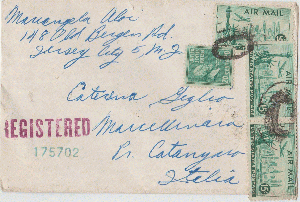 Mariangela Aloi
148 Old Bergen Rd.
Jersey City 5, N.J.
AIR MAIL
Caterina Giglio
REGISTERED
Marcellinara
175702
Pr. Catanzaro
Italia
AIR MAIL
AIR MAIL